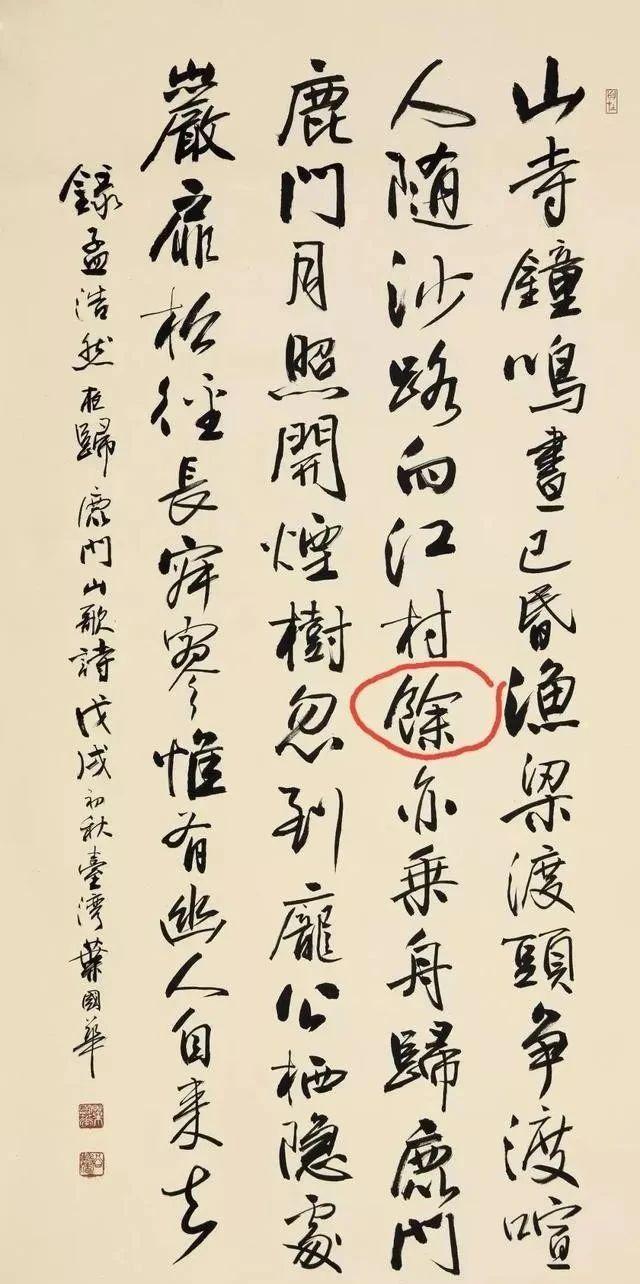 山寺鐘鳴晝已昏漁梁渡頭爭渡喧
人隨沙路向江村餘亦乗舟歸鹿門
鹿門月照開煙樹忽到龐公栖隱處
巖扉松徑長寂寥惟有幽人自来去
錄孟浩然夜歸鹿門山歌詩戊戌初秋臺灣葉國華